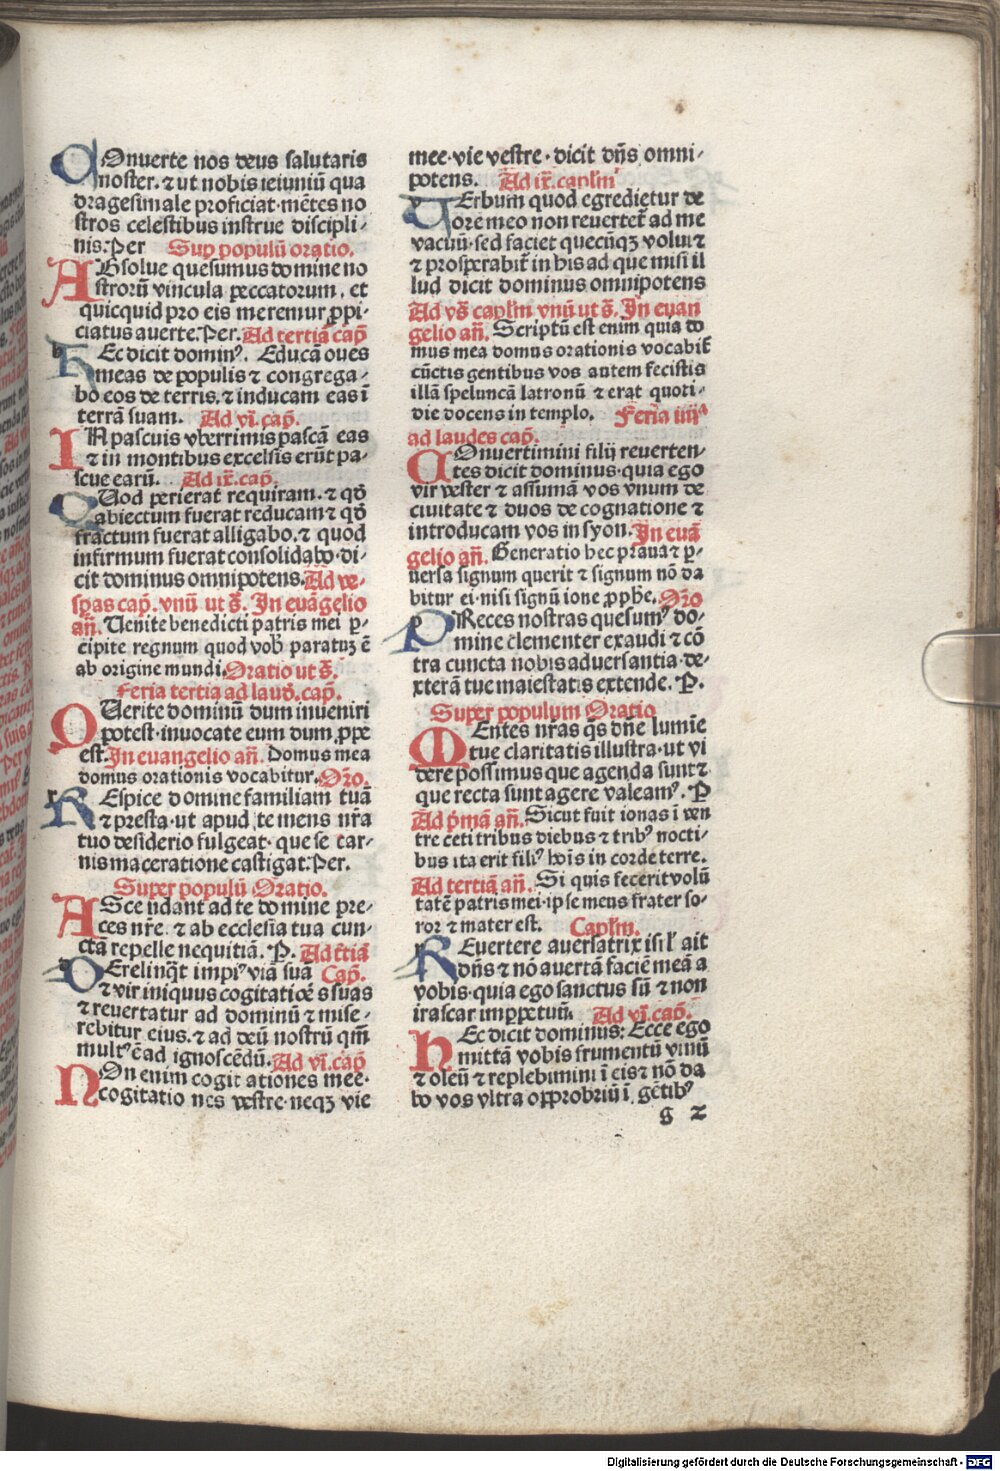 COnuerte nos deus salutaris
noster. ⁊ ut nobis ieiuniū qua
dragesimale proficiat· mētes no
stros celestibus instrue discipli-
nis: Per Sup populū oratio.
ABsolue quesumus domine no
strorū vincula peccatorum. et
quicquid pro eis meremur ꝓpi-
ciatus auerte. Per. Ad tertiā cap̄
HEc dicit dominꝰ. Educā oues
meas de populis ⁊ congrega-
bo eos de terris. ⁊ inducam eas ī
terrā suam. Ad vi. cap̄.
IN pascuis vberrimis pascā eas
⁊ in montibus excelsis erūt pa-
scue earū. Ad ix. cap̄.
QUod perierat requiram. ⁊ qd̄
abiectum fuerat reducam ⁊ qd̄
fractum fuerat alligabo. ⁊ quod
infirmum fuerat consolidabo· di-
cit dominus omnipotens. Ad ve-
sꝑas cap̄. vnū ut s̄. In euāgelio
an̄. Uenite benedicti patris mei ꝑ-
cipite regnum quod vob̄ paratuꝫ ē
ab origine mundi. Oratio ut s̄.
Feria tertia ad laud̄. cap̄.
QUerite dominū dum inueniri
potest· inuocate eum dum ꝓpe
est. In euangelio an̄. Domus mea
domus orationis vocabitur. Or̄o.
REspice domine familiam tuā
⁊ presta· ut apud te mens nr̄a
tuo desiderio fulgeat· que se car-
nis maceratione castigat: Per.
Super populū Oratio.
ASce ndant ad te domine pre-
ces nr̄e. ⁊ ab ecclesia tua cun-
ctā repelle nequitiā. P. Ad t̄tiā
DErelinq̄t impiꝰ viā suā Cap̄.
⁊ vir iniquus cogitatiōes suas
⁊ reuertatur ad dominū ⁊ mise-
rebitur eius. ⁊ ad deū nostrū qm̄
multꝰ ē ad ignoscēdū. Ad vi. cap̄
NOn enim cogit ationes mee·
cogitatio nes vestre· neqꝫ vie
mee· vie vestre· dicit dn̄s omni-
potens. Ad ix. capl̄m
UErbum quod egredietur de
ore meo non reuertet̄ ad me
vacuū· sed faciet quecūqꝫ volui ⁊
⁊ prosperabit̄ in his ad que misi il
lud dicit dominus omnipotens
Ad vs̄ capl̄m vnū ut s̄. In euan
gelio an̄. Scriptū est enim quia do
mus mea domus orationis vocabit̄
cūctis gentibus vos autem fecistis
illā speluncā latronū ⁊ erat quoti-
die docens in templo. Feria iiij
ad laudes cap̄.
COnuertimini filij reuerten-
tes dicit dominus· quia ego
vir vester ⁊ assumā vos vnum de
ciuitate ⁊ duos de cognatione ⁊
introducam vos in syon. In euā
gelio an̄. Generatio hec praua ⁊ ꝑ-
uersa signum querit ⁊ signum nō da
bitur ei· nisi signū ione ꝓph̄e. Or̄o
PReces nostras quesumꝰ do-
mine clementer exaudi ⁊ cō
tra cuncta nobis aduersantia de-
xterā tue maiestatis extende. P.
Super populum Oratio
MEntes nr̄as q̄s dn̄e lumīe
tue claritatis illustra· ut vi
dere possimus que agenda sunt ⁊
que recta sunt agere valeamꝰ. P
Ad p̄mā an̄. Sicut fuit ionas ī ven
tre ceti tribus diebus ⁊ tribꝰ nocti-
bus ita erit filiꝰ hoīs in corde terre.
Ad tertiā an̄. Si quis fecerit volū
tatē patris mei· ipse meus frater so-
ror ⁊ mater est. Capl̄m.
REuertere auersatrix isrl̄ ait
dn̄s ⁊ nō auertā faciē meā a
vobis· quia ego sanctus sū ⁊ non
irascar imꝑpetuū. Ad vi. cap̄.
HEc dicit dominus: Ecce ego
mittā vobis frumentū vinū
⁊ oleū ⁊ replebimini ī eis ⁊ nō da
bo vos vltra opprobriū ī gētibꝰ
g 2
Digitalisierung gefördert durch die Deutsche Forschungsgemeinschaft - DFG